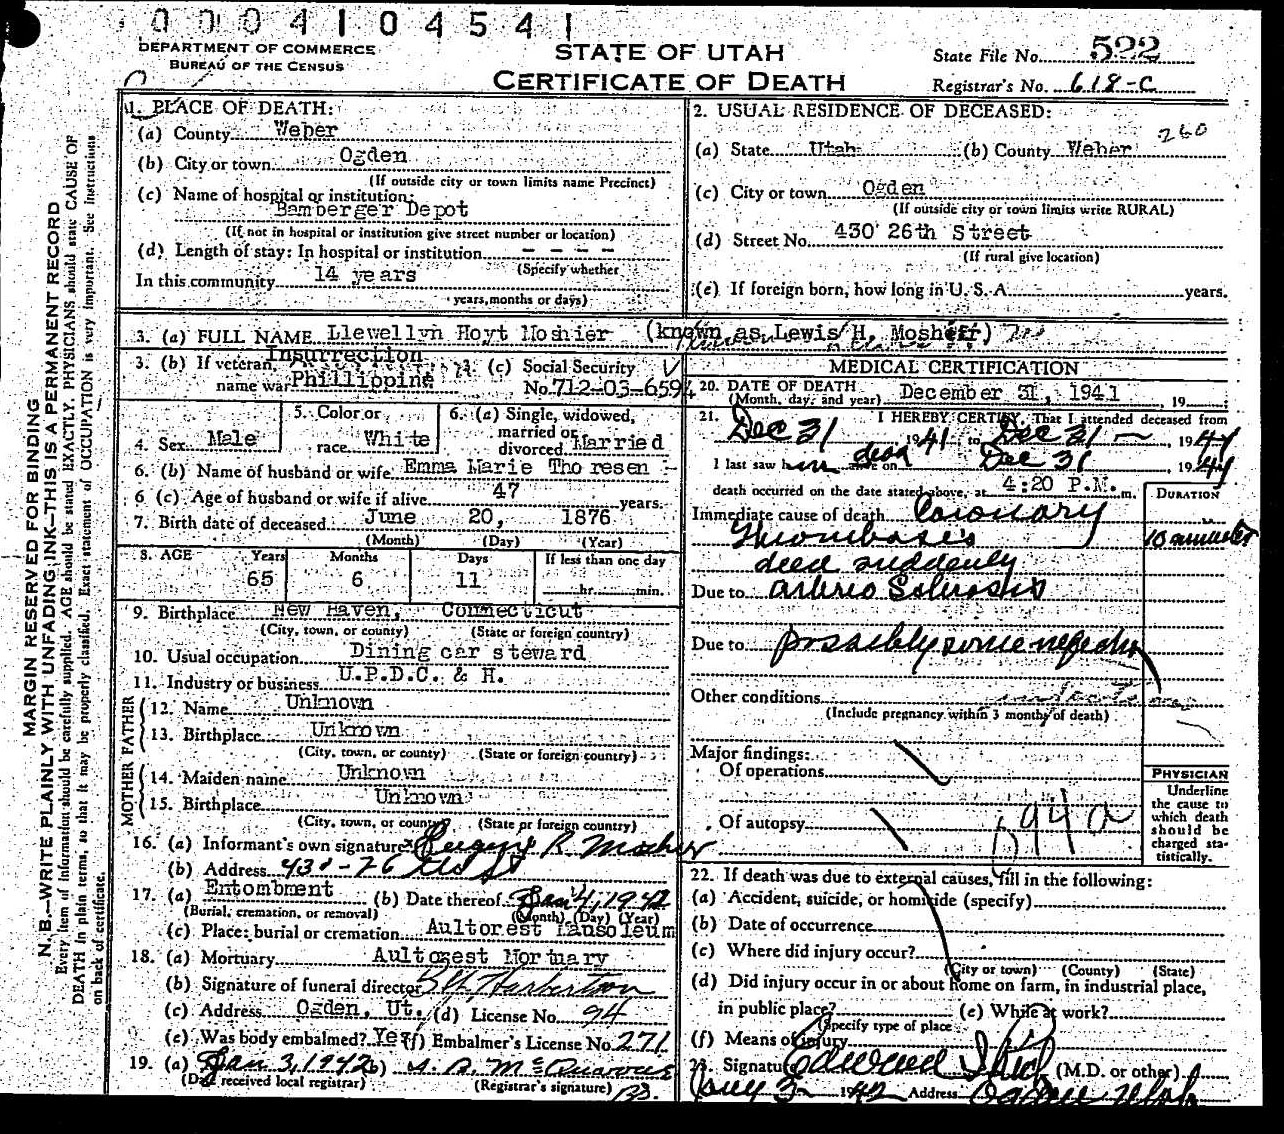 0004104541
DEPARTMENT OF COMMERCE
BUREAU OF THE CENSUS
STATE OF UTAH
CERTIFICATE OF DEATH
State File No. 522
Registrar's No. 618-C
MARGIN RESERVED FOR BINDING
N. B.—WRITE PLAINLY WITH UNFADING INK—THIS IS A PERMANENT RECORD
Every item of information should be carefully supplied. AGE should be stated EXACTLY. PHYSICIANS should state CAUSE OF
DEATH in plain terms, so that it may be properly classified. Exact statement of OCCUPATION is very important. See Instructions
on back of certificate.
1. PLACE OF DEATH:
(a) County Weber
(b) City or town Ogden
(If outside city or town limits name Precinct)
(c) Name of hospital or institution:
Bamberger Depot
(If not in hospital or institution give street number or location)
(d) Length of stay: In hospital or institution - - - -
(Specify whether
In this community 14 years
years, months or days)
2. USUAL RESIDENCE OF DECEASED:
260
(a) State Utah (b) County Weber
(c) City or town Ogden
(If outside city or town limits write RURAL)
(d) Street No. 430 26th Street
(If rural give location)
(e) If foreign born, how long in U. S. A. years.
3. (a) FULL NAME Llewellyn Hoyt Moshier (known as Lewis H. Mosheir)
3. (b) If veteran, Insurrection
name war Phillippine
(c) Social Security
No. 712-03-6594
4. Sex Male
5. Color or
race White
6. (a) Single, widowed,
married or
divorced Married
6. (b) Name of husband or wife Emma Marie Thoresen
6 (c) Age of husband or wife if alive 47 years.
7. Birth date of deceased June 20, 1876
(Month) (Day) (Year)
8. AGE Years Months Days If less than one day
65 6 11 hr. min.
9. Birthplace New Haven, Connecticut
(City, town, or county) (State or foreign country)
10. Usual occupation Dining car steward
11. Industry or business U.P.D.C. & H.
FATHER
12. Name Unknown
13. Birthplace Unknown
(City, town, or county) (State or foreign country)
MOTHER
14. Maiden name Unknown
15. Birthplace Unknown
(City, town, or county) (State or foreign country)
16. (a) Informant's own signature Eugene R Moshier
(b) Address 430-26 St
17. (a) Entombment (b) Date thereof Jan 4, 1942
(Burial, cremation, or removal) (Month) (Day) (Year)
(c) Place: burial or cremation Aultorest Mausoleum
18. (a) Mortuary Aultorest Mortuary
(b) Signature of funeral director
(c) Address Ogden, Ut. (d) License No. 94
(e) Was body embalmed? Yes (f) Embalmer's License No. 271
19. (a) Jan 3, 1942 (b)
(Date received local registrar) (Registrar's signature)
MEDICAL CERTIFICATION
20. DATE OF DEATH December 31, 1941, 19
(Month, day, and year)
21. I HEREBY CERTIFY, That I attended deceased from
Dec 31 1941 to Dec 31 - 1941
I last saw him dead on Dec 31, 1941
death occurred on the date stated above, at 4:20 P.M. m.
DURATION
Immediate cause of death Coronary
Thrombosis 10 minutes
died suddenly
Due to arterio Sclerosis
Due to possibly some infection
Other conditions
(Include pregnancy within 3 months of death)
Major findings:
Of operations
Of autopsy
94a
PHYSICIAN
Underline
the cause to
which death
should be
charged sta-
tistically.
22. If death was due to external causes, fill in the following:
(a) Accident, suicide, or homicide (specify)
(b) Date of occurrence
(c) Where did injury occur?
(City or town) (County) (State)
(d) Did injury occur in or about home on farm, in industrial place,
in public place? (e) While at work?
(Specify type of place
(f) Means of injury
23. Signature Edward (M.D. or other)
3 - 1942 Address Ogden Utah